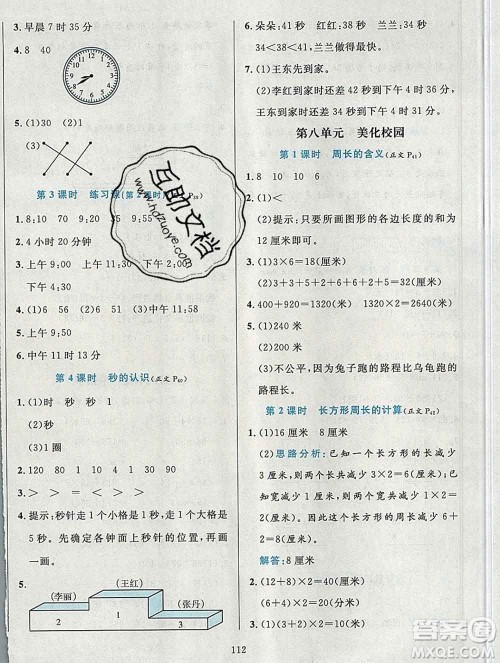 3. 早晨 7 时 35 分
4. 8 40
5. (1)30 (2)1
(3)
第 3 课时 练习课(第 2 课时
1. 8:10 70 55 90 8:20
2. 4 小时 20 分钟
3. 上午 9:00 上午 11:30 下午 2:00
4. (1)6 56 (2)6 51 (3)11:58
5. 上午 9:50
6. 中午 11 时 13 分
第 4 课时 秒的认识(正文 P40)
1. (1)时 秒 秒 1
(2)
(3)1 圈
2. 120 80 1 90 4 290
3. > > = < >
4. 提示:秒针走 1 个小格是 1 秒,走 1 个大格是 5 秒。先确定各钟面上秒针的位置,再画一画。
5. (李丽) (王红) (张丹)
2 1 3
6. 朵朵:41 秒 红红:38 秒 兰兰:34 秒
34<38<41,兰兰做得最快。
7. (1)王东先到家。
(2)李红到家时还差 24 秒到下午 4 时 36 分,王东到家时还差 29 秒到下午 4 时 31 分。
第八单元 美化校园
第 1 课时 周长的含义(正文 P41)
1. 8 10 16
2. (1)<
(2)提示:只要所画图形的各边长度的和为 12 厘米即可。
3. (1)3×6=18(厘米)
(2)3+3+2+6+5+6+5+2=32(厘米)
4. 400+920=1320(米)
5. (1)200+600=800(米)
(2)300+320=620(米)
(3)不公平,因为兔子跑的路程比乌龟跑的路程长。
第 2 课时 长方形周长的计算(正文 P42)
1. (1)16 厘米 8 厘米
(2)思路分析:已知一个长方形的长减少 3 厘米,则两个长共减少 3×2=6(厘米);因为宽减少 1 厘米,则两个宽共减少 1×2=2(厘米),所以长方形的周长减少 6+2=8(厘米)。
解答:8 厘米
2. (1)(12+8)×2=40(厘米)
(2)(6+4)×2=20(厘米)
3. (1)(3+2)×2=10(米)
112
互助文档
hdzuoye.com
答案圈
MXQE.COM